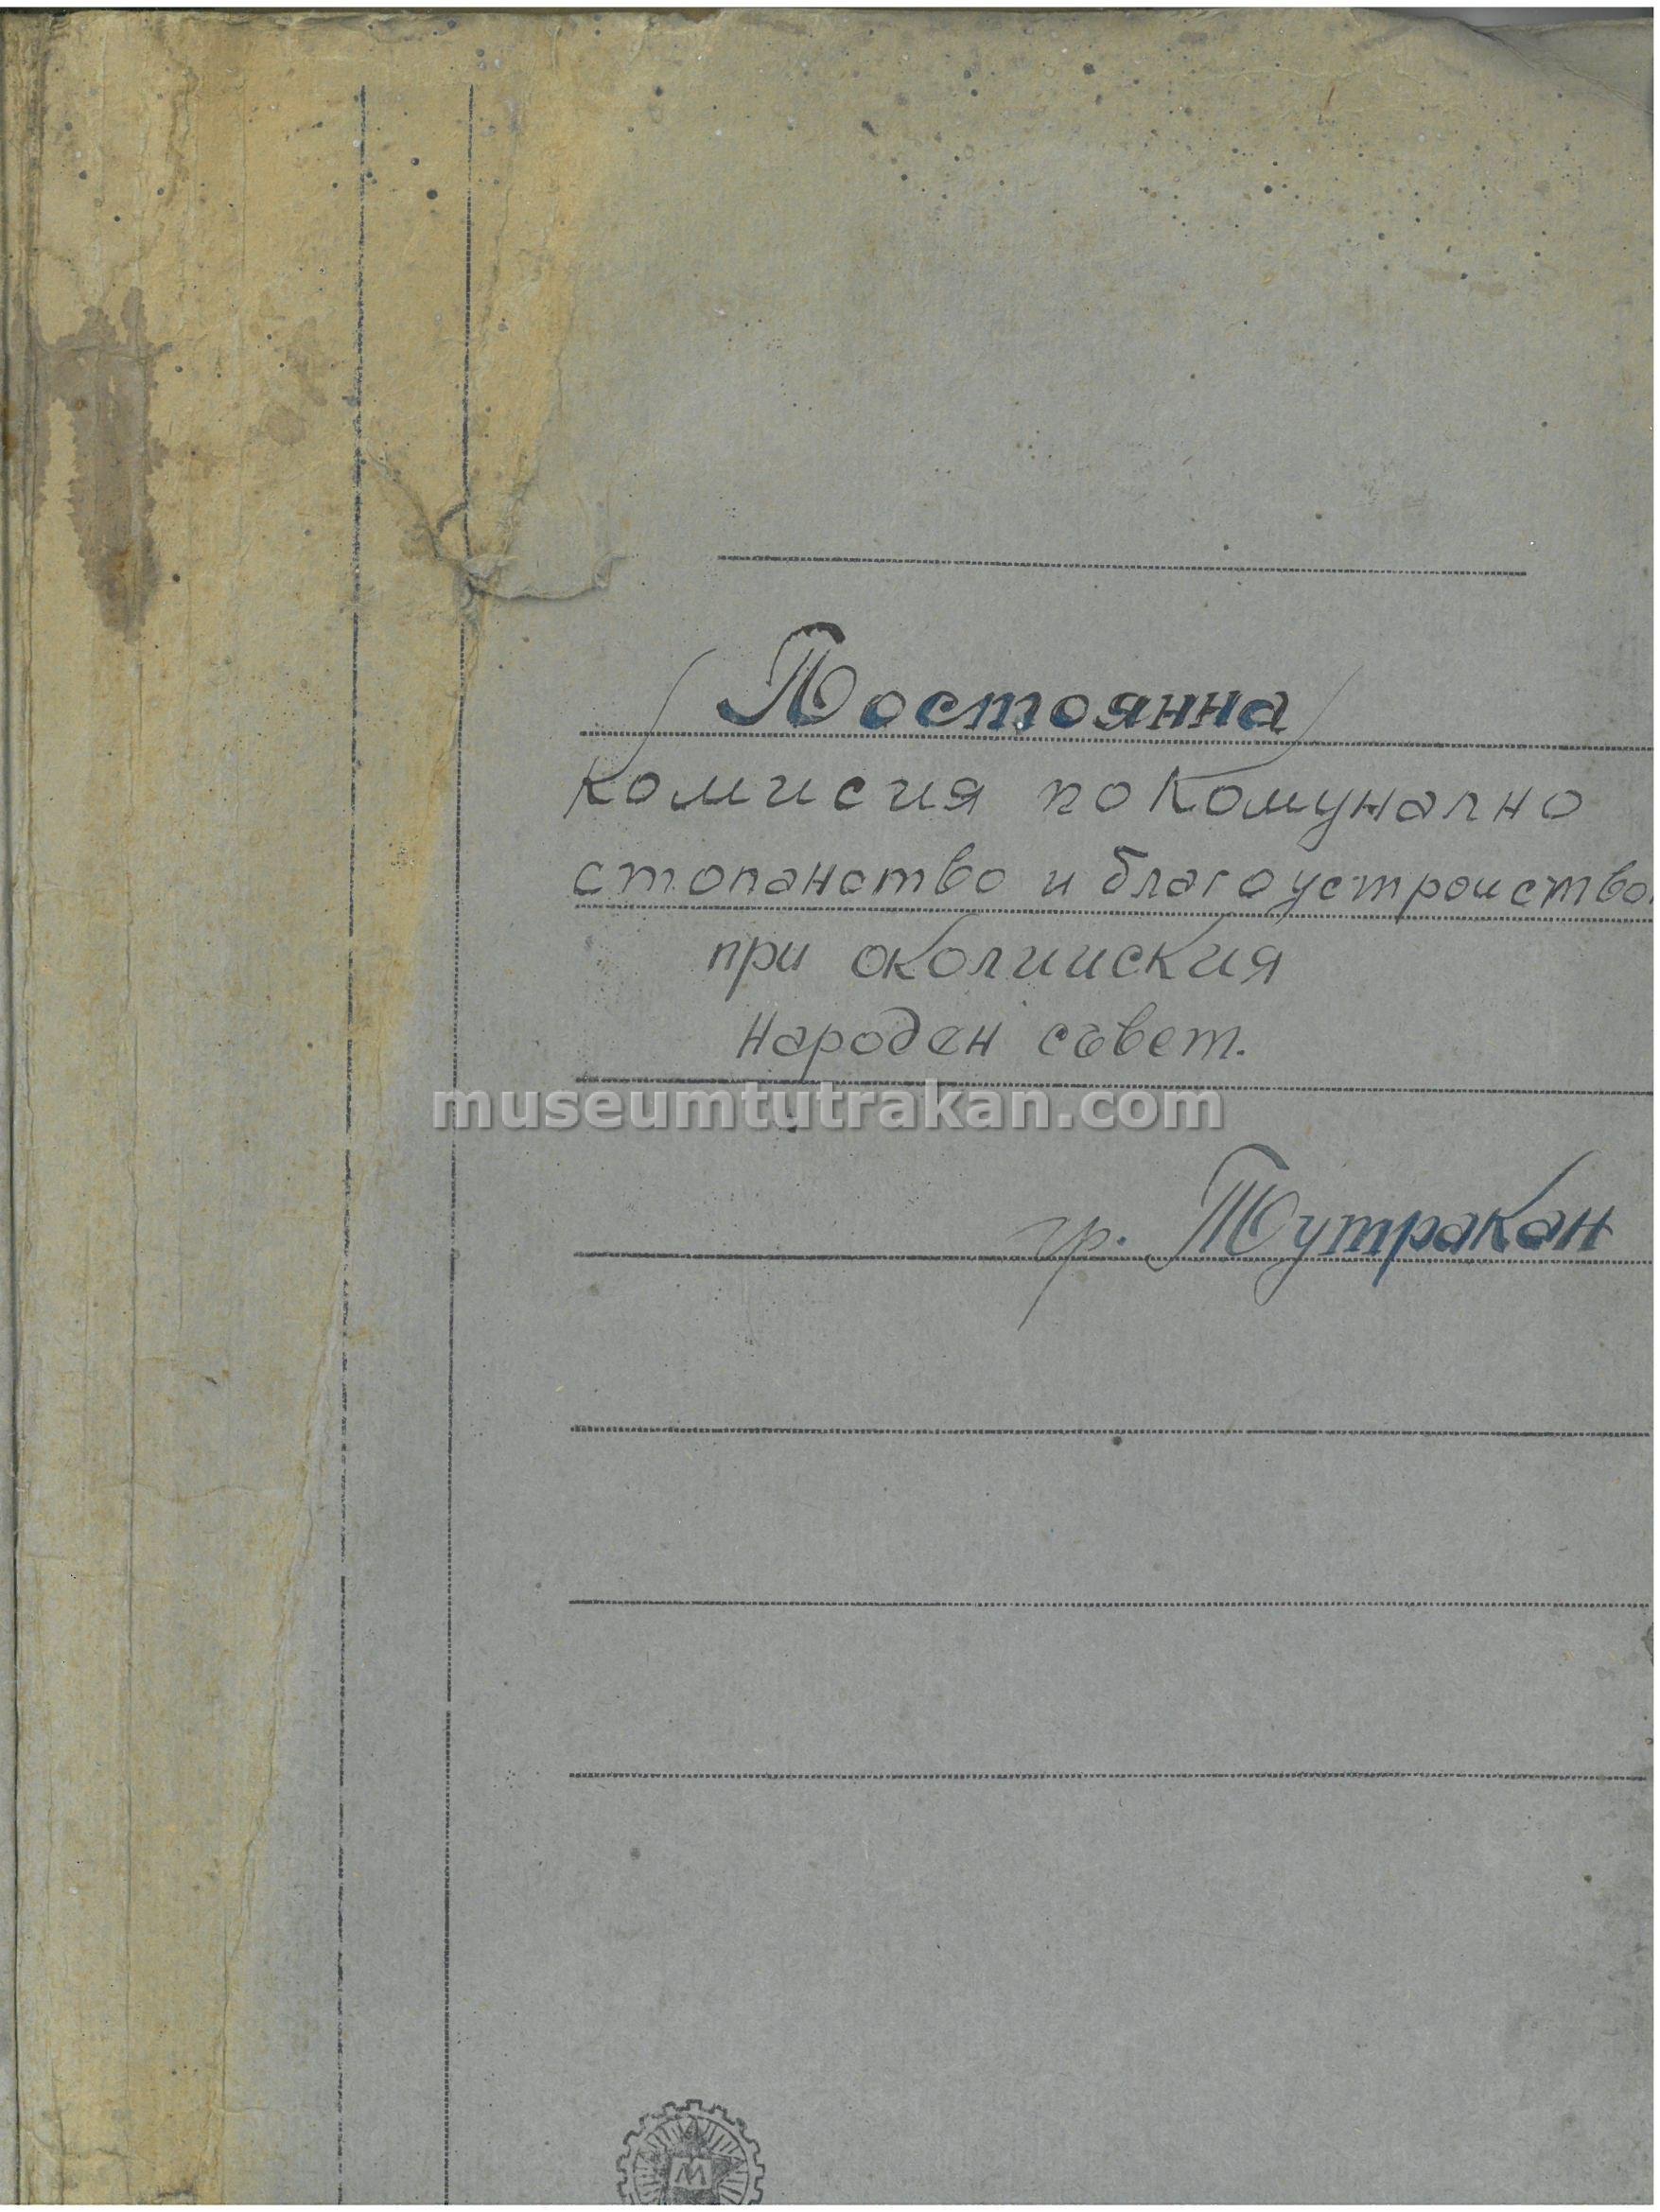 Постоянна
комисия по Комунално
стопанство и благоустроиство
при околииския
Народен съвет.
museumtutrakan.com
гр. Тутракан
М